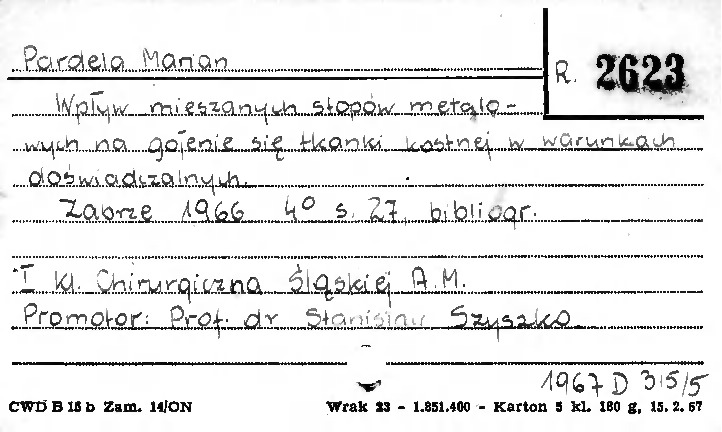 Pardela Marian
R. 2623
Wpływ mieszanych stopów metalo-
wych na gojenie się tkanki kostnej w warunkach
doświadczalnych.
Zabrze 1966 4° s. 27, bibliogr.
I kl. Chirurgiczna Śląskiej A.M.
Promotor: Prof. dr Stanisław Szyszko.
1967 D 315/5
CWD B 18 b Zam. 14/ON
Wrak 23 - 1.851.400 - Karton 5 kl. 180 g, 15. 2. 67